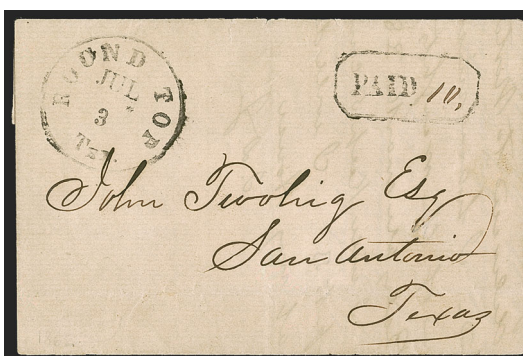 ROOND TOP
JUL
3
Tex.
PAID 10,
John Twohig Esq
San Antonio
Texas